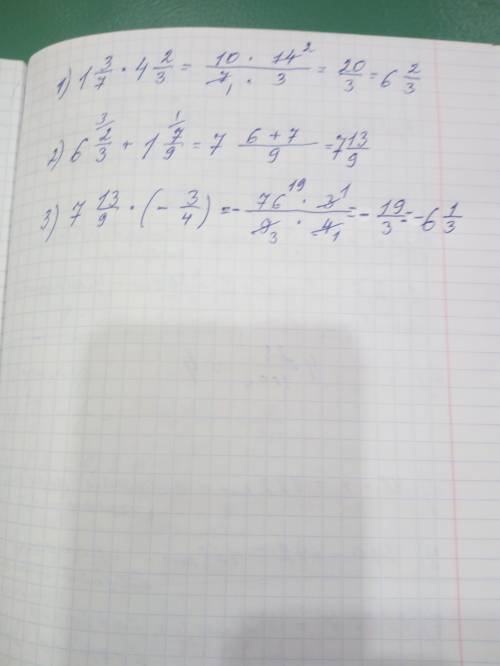 1) 1 3/7 · 4 2/3 = (10 · 14²)/(7₁ · 3) = 20/3 = 6 2/3
2) 6 2/3 (3/) + 1 7/9 (1/) = 7 (6+7)/9 = 7 13/9
3) 7 13/9 · (- 3/4) = - (76¹⁹ · 3¹)/(9₃ · 4₁) = - 19/3 = -6 1/3